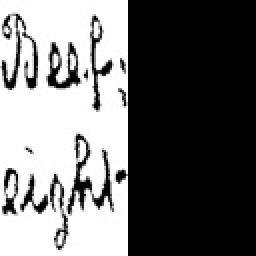 Beef;
eight-